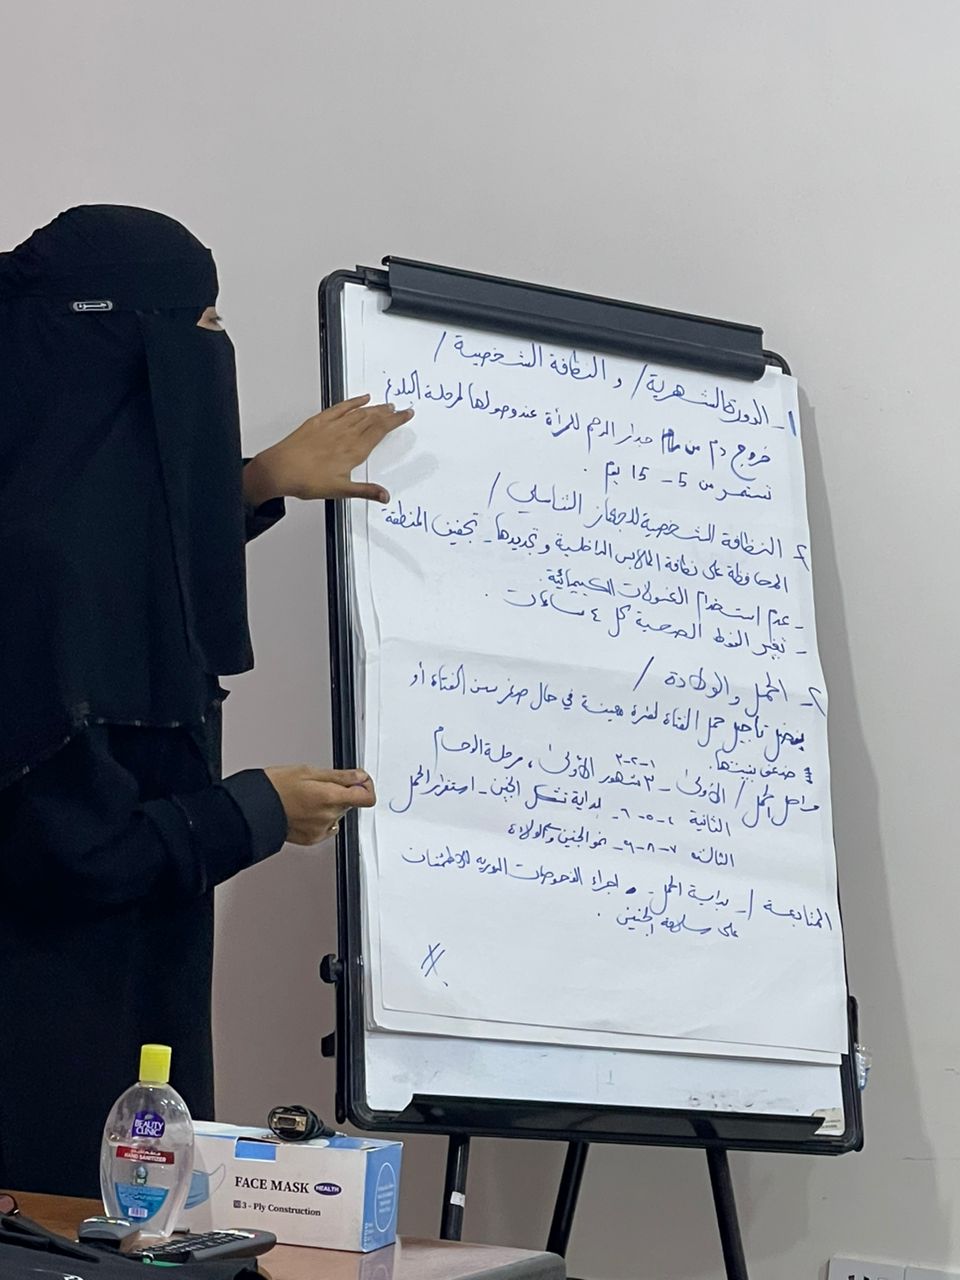 1- الدورة الشهرية / و النظافة الشخصية /
خروج دم من جدار الرحم للمرأة عند وصولها لمرحلة البلوغ
تستمر من 5 - 15 يوم .
2 النظافة الشخصية للجهاز التناسلي /
المحافظة على نظافة الملابس الداخلية و تجديدها - تجفيف المنطقة
- عدم استخدام الغسولات الكيميائية .
- تغير الفوط الصحية كل ٤ ساعات .
2- الحمل والولادة /
يفضل تأجيل حمل الفتاة لفترة معينة في حال صغر سن الفتاة أو
ضعف بنيتها .
١-٢-٣
مراحل الحمل / الأولى - ٣ شهور الأولى ، مرحلة الوحام
الثانية ٤-٥-٦- بداية تشكل الجنين - استقرار الحمل
الثالثة ٧-٨-٩- نمو الجنين والولادة
المتابعة /- بداية الحمل - اجراء الفحوصات الدوريه للاطمئنان
على سلامة الجنين .
BEAUTY CLINIC
HAND SANITIZER
FACE MASK HEALTH
3 - Ply Construction